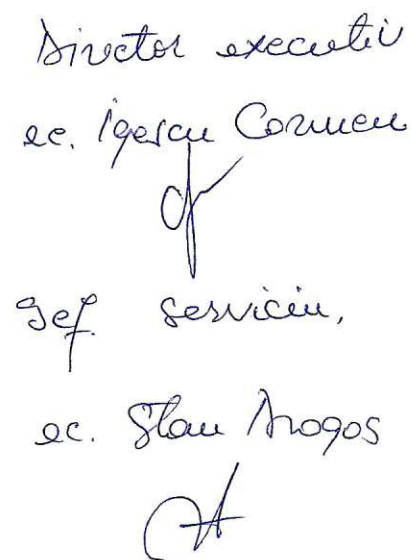 Director executiv
ec. Igescu Carmen
Şef serviciu,
ec. Stan Dragoş